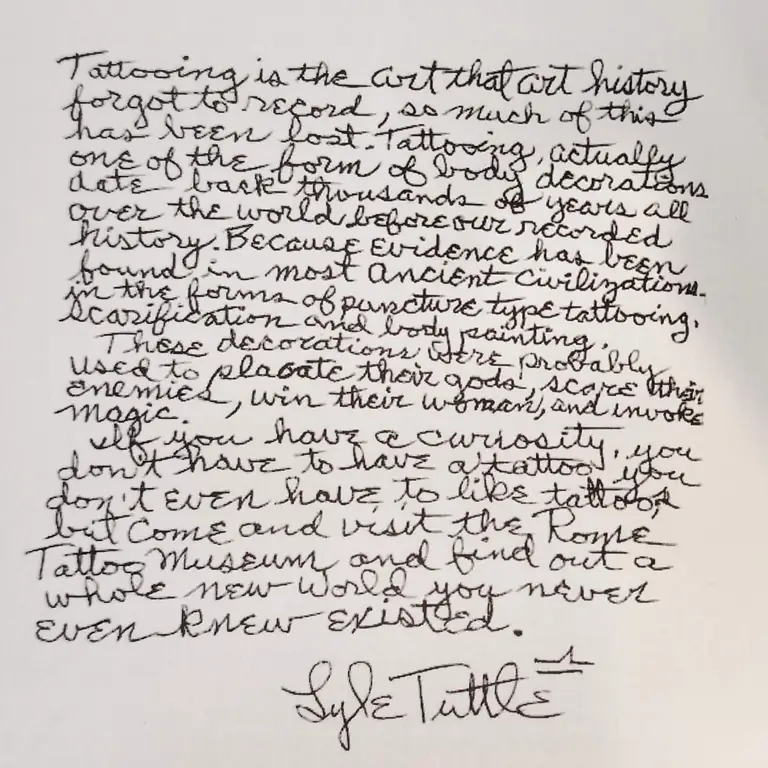 Tattooing is the art that art history
forgot to record, so much of this
has been lost. Tattooing, actually
one of the form of body decorations
date back thousands of years all
over the world before our recorded
history. Because evidence has been
found in most ancient civilizations.
in the forms of puncture type tattooing,
scarification and body painting.
These decorations were probably
used to placate their gods, scare their
enemies, win their woman, and invoke
magic.
If you have a curiosity, you
don't have to have a tattoo you
don't even have to like tattoos
but come and visit the Rome
Tattoo Museum and find out a
whole new world you never
even knew existed.
Lyle Tuttle